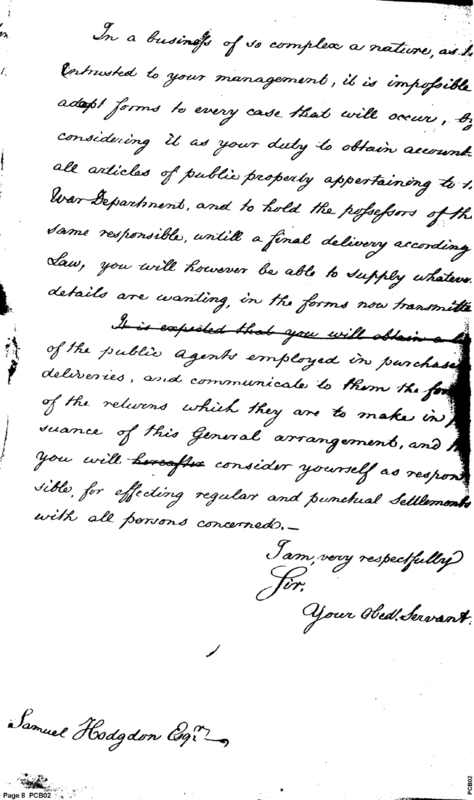 In a business of so complex a nature, as is
entrusted to your management, it is impossible
adapt forms to every case that will occur, by
considering it as your duty to obtain account
all articles of public property appertaining to
War Department, and to hold the possessors of the
same responsible, untill a final delivery according
Law, you will however be able to supply whatever
details are wanting, in the forms now transmitte
It is expected that you will obtain a
of the public agents employed in purchase
deliveries, and communicate to them the for
of the returns which they are to make in
suance of this General arrangement, and
you will hereafter consider yourself as respon
sible, for effecting regular and punctual settlements
with all persons concerned.—
I am, very respectfully
Sir.
Your Obed. Servant.
Samuel Hodgdon Esqr.
Page 8 PCB02
PCB02